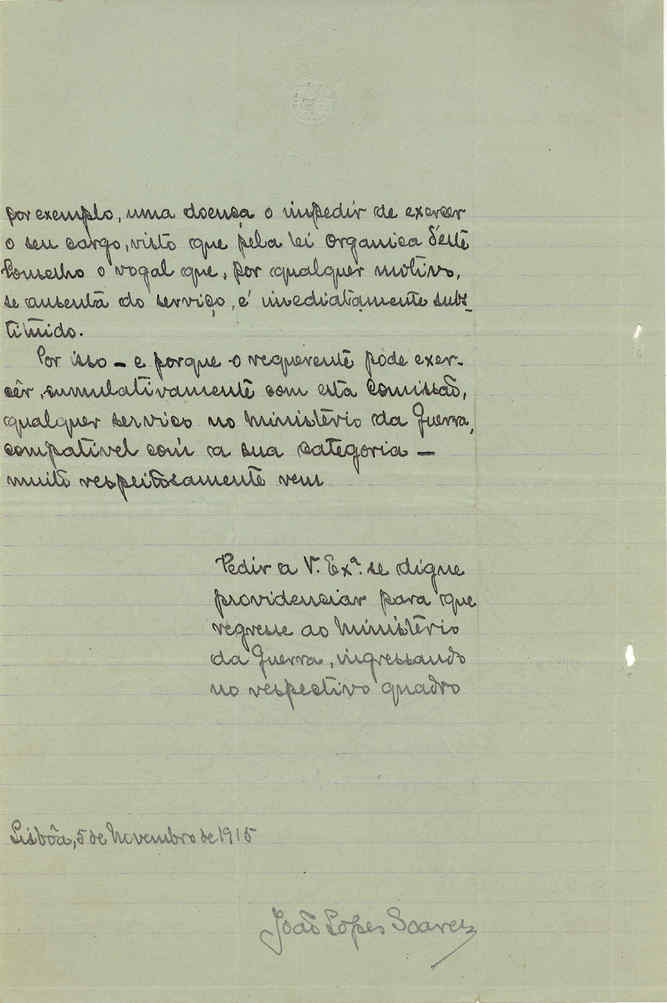 por exemplo, uma doença o impedir de exercer
o seu cargo, visto que pela lei organica dêste
Conselho o vogal que, por qualquer motivo,
se ausenta do serviço, é imediatamente subs-
tituido.
Por isso – e porque o requerente póde exer-
cêr, cumulativamente com esta Comissão,
qualquer serviço no Ministério da Guerra,
compativel com a sua categoria –
muito respeitosamente vem
Pedir a V. Exª. se digne
providenciar para que
regresse ao Ministério
da Guerra, ingressando
no respectivo quadro
Lisbôa, 5 de Novembro de 1915
João Lopes Soares